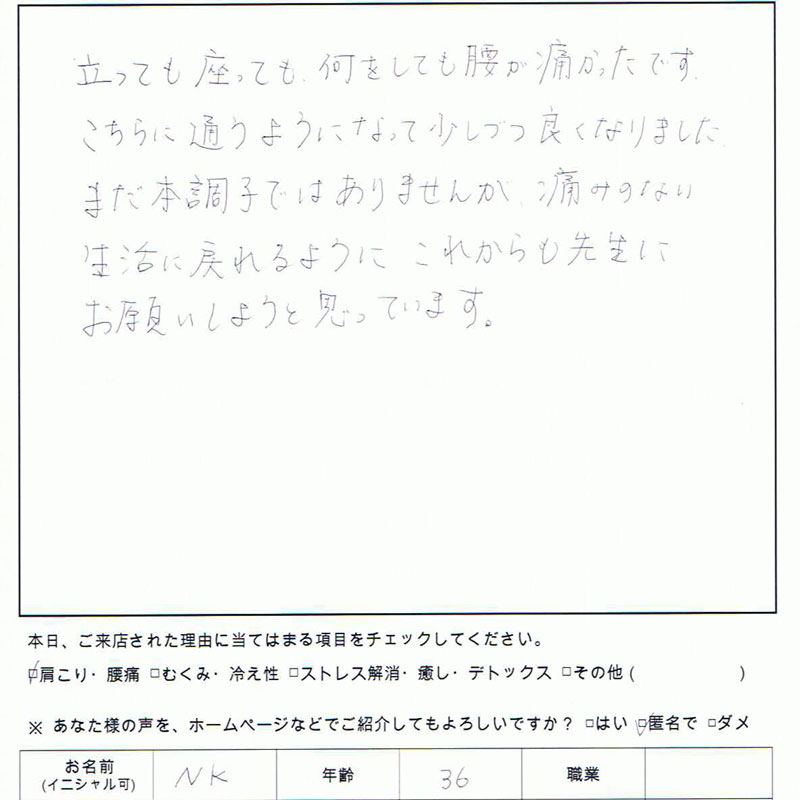 立っても座っても、何をしても腰が痛かったです。
こちらに通うようになって少しづつ良くなりました。
まだ本調子ではありませんが、痛みのない
生活に戻れるように これからも先生に
お願いしようと思っています。
本日、ご来店された理由に当てはまる項目をチェックしてください。
☑肩こり・腰痛 □むくみ・冷え性 □ストレス解消・癒し・デトックス □その他 ( )
※ あなた様の声を、ホームページなどでご紹介してもよろしいですか？ □はい ☑匿名で □ダメ
お名前 (イニシャル可) NK 年齢 36 職業